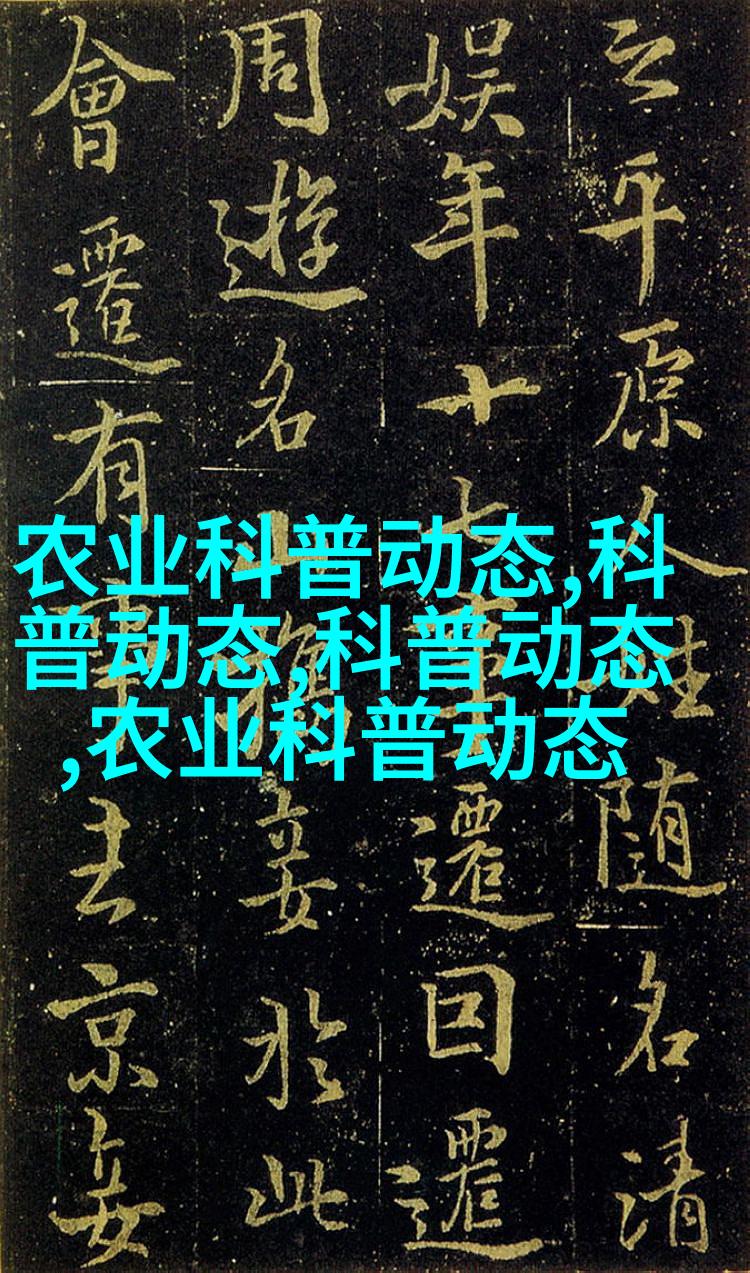 农业科普动态,科
普动态,科普动态
,农业科普动态
之平原人姓随名清
娱年十七遷回遷
周遊名山妾於此
會遷有事京妾